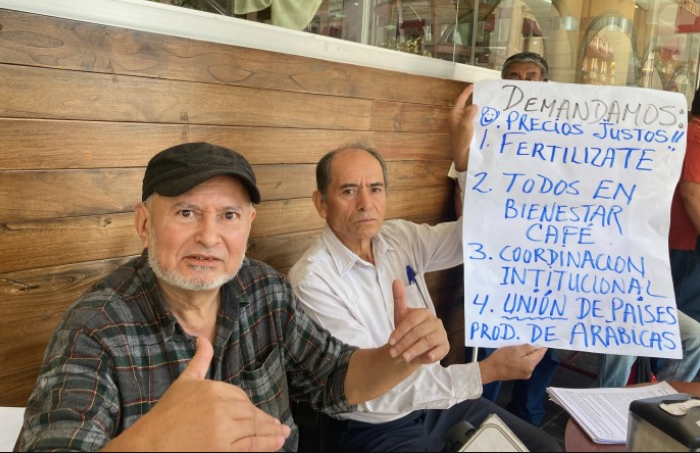 DEMANDAMOS:
0. PRECIOS JUSTOS!!
1. FERTILIZATE
2. TODOS EN
BIENESTAR
CAFÉ
3. COORDINACION
INTITUCIONAL
4. UNIÓN DE PAÍSES
PROD. DE ARABICAS